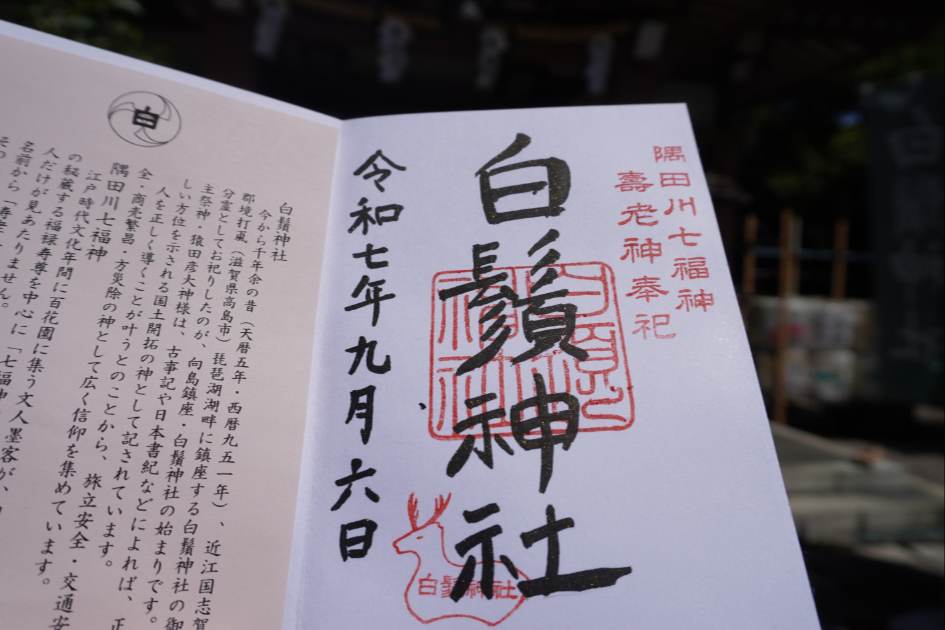 隅田川七福神
壽老神奉祀
白鬚神社
白鬚神社
令和七年九月六日
白
白鬚神社
今から千年余の昔(天暦五年・西暦九五一年)、近江国志賀
郡境打颪(滋賀県高島市)琵琶湖湖畔に鎮座する白鬚神社の御
分霊としてお祀りしたのが、向島鎮座・白鬚神社の始まりです。
主祭神・猿田彦大神様は、古事記や日本書紀などによれば、正
しい方位を示される国土開拓の神として記されています。
人を正しく導くことが叶うとのことから、旅立安全・交通安
全・商売繁昌・方災除の神として広く信仰を集めています。
隅田川七福神
江戸時代文化年間に百花園に集う文人墨客が、
の秘蔵する福禄寿尊を中心に「七福神
人だけが見あたりません。
名前から「寿老